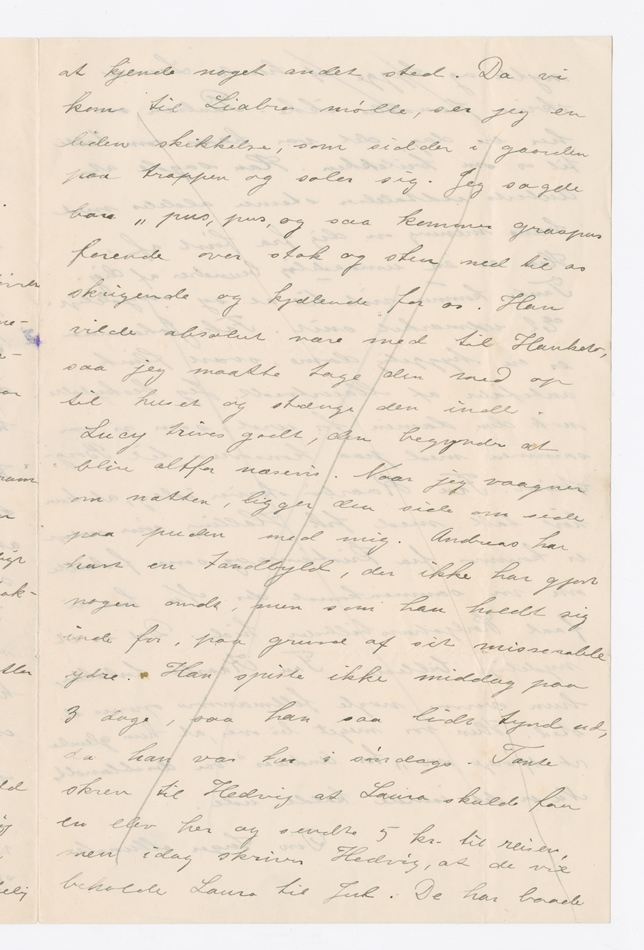 at kjende noget andet sted. Da vi
kom til Liabro mølle, ser jeg en
liden skikkelse, som sidder i gaarden
paa trappen og soler sig. Jeg sagde
bare „ pus, pus, og saa kommer graapus
farende over stok og sten ned til os
skrigende og kjælende for os. Han
vilde absolut være med til Hauketo,
saa jeg maatte tage den med op
til huset og stænge den inde.
Lucy trives godt, den begynder at
blive altfor næsevis. Naar jeg vaagner
om natten, ligger den side om side
paa puden med mig. Andreas har
havt en Tandbyld, der ikke har gjort
nogen ondt, men som han holdt sig
inde for, paa grund af sit misserable
ydre. Han spiste ikke middag paa
3 dage, saa han saa lidt tynd ud,
da han var her i søndags. Tante
skrev til Hedvig at Laura skulde faa
en elev her og sendte 5 kr. til reisen,
men idag skriver Hedvig, at de vil
beholde Laura til Jul. De har baade